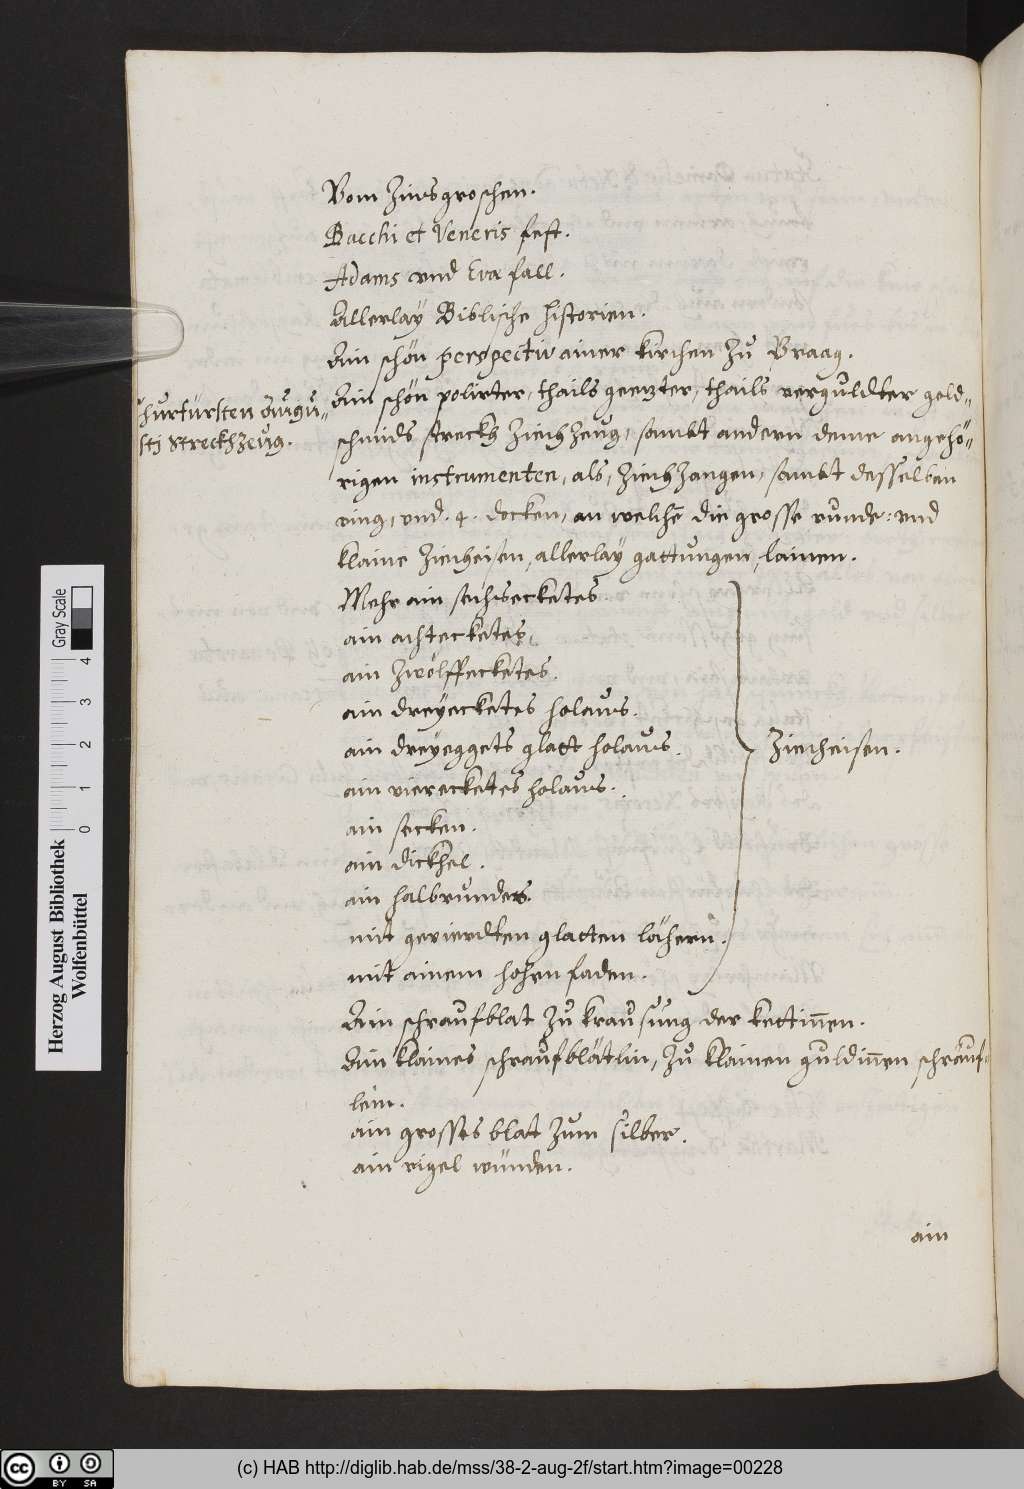 Vom Zinsgroschen.
Bacchi et Veneris fest.
Adams vnd Evæ fall.
Allerlaÿ Biblische historien.
Ain schön perspectiv ainer kirchen zu Praag.
Churfürsten Augu-
sti Streckhzeug.
Ain schön polirter, thails geetzter, thails verguldter gold-
schmids streckh Ziechzeug, sambt andern deme angehö-
rigen instrumenten, als, Ziechzangen, sambt desselben
ring, vnd .4. docken, an welche die grosse runde: vnd
klaine Zieheisen, allerlaÿ gattungen, lainen.
Mehr ain sechsecketes.
ain achtecketes,
ain zwölffecketes.
ain dreÿecketes holaus.
ain dreÿeggets glatt holaus.
ain vierecketes holaus.
ain secken.
ain dickhel.
ain halbrundes.
mit gevierdten glatten löchern.
mit ainem hohen faden.
Zieheisen.
Ain schraufblat zu krausung der kettinen.
Ain klaines schraufblätlin, zu klainen guldinen schräuf-
lein.
ain grosses blat zum silber.
ain rigel wunden.
ain
Herzog August Bibliothek
Wolfenbüttel
0 1 2 3 4
Gray Scale
(c) HAB http://diglib.hab.de/mss/38-2-aug-2f/start.htm?image=00228
cc BY SA